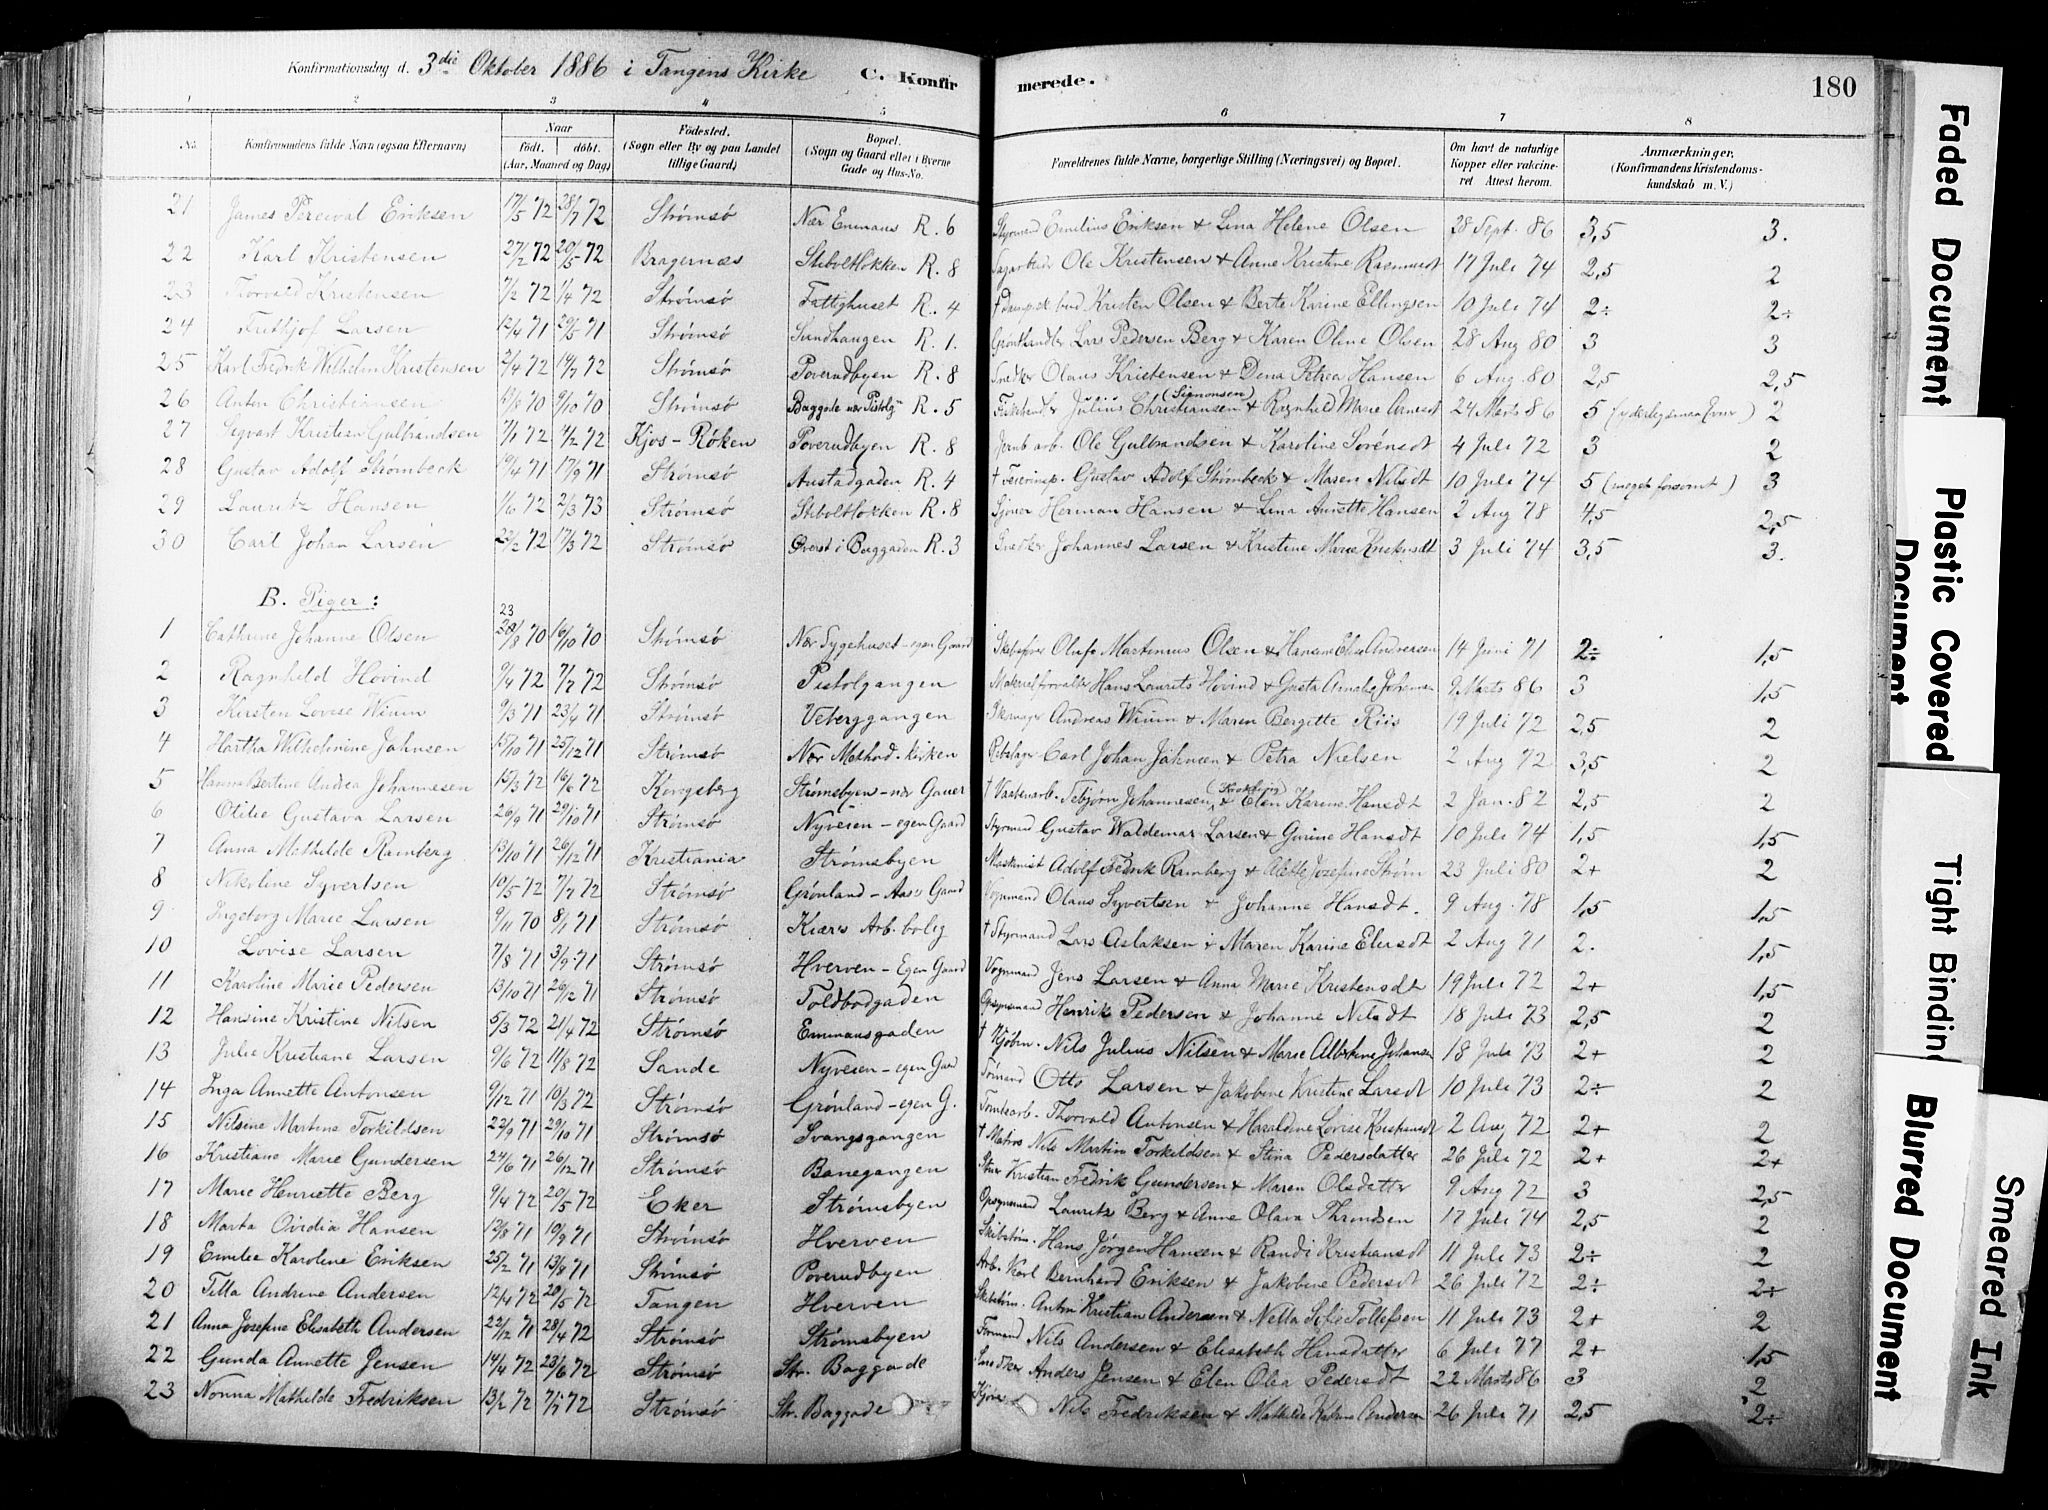 Konfirmationsdag d. 3die Oktober 1886 i Tangens Kirke C. Konfirmerede. 180
1 2 3 4 5 6 7 8
No. Konfirmandens fulde Navn (ogsaa Efternavn) Naar födt. döbt. (Aar, Maaned og Dag) Födested. (Sogn eller By og paa Landet tillige Gaard) Bopæl. (Sogn og Gaard eller i Byerne Gade og Hus-No. Forældrenes fulde Navne, borgerlige Stilling (Næringsvei) og Bopæl. Om havt de naturlige Kopper eller vakcineret Attest herom. Anmærkninger. (Konfirmandens Kristendomskundskab m. V.)
21 James Percival Eriksen 17/5 72 28/7 72 Strømsø Nær Emmaus R. 6 Styrmand Emilius Eriksen & Lina Helene Olsen 28 Sept. 86 3,5 3.
22 Karl Kristensen 27/2 72 20/5 72 Bragernæs Stiboltløkken R. 8 Ole Kristensen & Anne Kristine Rasmusdt 17 Juli 74 2,5 2
23 Thorvald Kristensen 7/2 72 1/4 72 Strømsø Fattighuset R. 4 Kristen Olsen & Berte Karine Ellingsen 10 Juli 74 2÷ 2÷
24 Frithjof Larsen 12/4 71 29/5 71 Strømsø Sundhaugen R. 1. Grønthandler Lars Pedersen Berg & Karen Oline Olsen 28 Aug 80 3 3
25 Karl Fredrik Wilhelm Kristensen 2/4 72 14/7 72 Strømsø Poverudbyen R. 8 Snedker Olaus Kristensen & Dena Petrea Hansen 6 Aug. 80 2,5 2,5
26 Anton Christiansen 13/8 70 9/10 70 Strømsø Baggade nær Pistolg R. 5 Julius Christiansen (Simonsen) & Ragnhild Marie 24 Marts 86 5 2
27 Segvart Kristian Gulbrandsen 7/1 72 14/2 72 Kjos-Røken Poverudbyen R. 8 Jernb arb. Ole Gulbrandsen & Karoline Sørensdt 4 Juli 72 3 2
28 Gustav Adolf Strømbeck 19/4 71 17/9 71 Strømsø Austadgaden R. 4 † Feierinsp. Gustav Adolf Strømbeck & Maren Nilsdt 10 Juli 74 5 (meget forsømt) 3
29 Lauritz Hansen 1/6 72 2/3 73 Strømsø Stiboltløkken R. 8 Sjøner Herman Hansen & Lina Annette Hansen 2 Aug 78 4,5 2,5
30 Carl Johan Larsen 23/2 72 17/3 72 Strømsø Øverst i Baggaden R. 3 Snedker Johannes Larsen & Kristine Marie 3 Juli 74 3,5 3.
B. Piger:
1 Cathrine Johanne Olsen 23/8 70 16/10 70 Strømsø Nær Sygehuset - egen Gaard Skibsfører Oluf Martinius Olsen & Hansine Elise Andersen 14 Juni 71 2÷ 1,5
2 Ragnhild Hovind 9/4 72 7/7 72 Strømsø Pistolgangen Hans Laurits Hovind & Gusta Amalie Johansen 9 Marts 86 3 1,5
3 Kirsten Lovise Wium 9/3 71 23/4 71 Strømsø Veberggangen Andreas Wium & Maren Bergitte Riis 19 Juli 72 2,5 2
4 Hartha Wilhelmine Jahnsen 15/10 71 25/12 71 Strømsø Nær Methad. kirken Rebslager Carl Johan Jahnsen & Petra Nielsen 2 Aug 72 3,5 2
5 Hanna Bertine Andrea Johannesen 15/3 72 16/6 72 Kongsberg Strømsbyen - nær Gauer † Vaabenarb. Tebjørn Johannesen & Elen Karine Hansdt 2 Jan. 82 2,5 2
6 Otilie Gustava Larsen 26/9 71 29/10 71 Strømsø Nyveien - egen Gaard Styrmand Gustav Waldemar Larsen & Gurine Hansdt 10 Juli 74 1,5 1,5
7 Anna Mathilde Ramberg 13/10 71 26/12 71 Kristiania Strømsbyen Maskinist Adolf Fredrik Ramberg & Alette Josefine Strøm 23 Juli 80 2+ 2
8 Nikoline Syvertsen 10/5 72 7/7 72 Strømsø Grønland - Aas's Gaard Vognmand Olaus Syvertsen & Johanne Hansdt. 9 Aug. 78 1,5 1,5
9 Ingeborg Marie Larsen 9/11 70 8/1 71 Strømsø Kiær's Arb. bolig † Styrmand Lars Aslaksen & Maren Karine Elisdt 2 Aug 71 2. 1,5
10 Lovise Larsen 7/8 71 3/9 71 Strømsø Hverven - Egen Gaard Vognmand Jens Larsen & Anna Marie Kristensdt 19 Juli 72 2+ 1,5
11 Karoline Marie Pedersen 13/10 71 26/12 71 Strømsø Toldbodgaden Opsynsmand Henrik Pedersen & Johanne Nilsdt 18 Juli 73 2,5 2
12 Hansine Kristine Nilsen 5/3 72 21/4 72 Strømsø Emmausgaden † Kjøbm. Nils Julius Nilsen & Marie Albertine Johansen 18 Juli 73 2+ 2
13 Julie Kristiane Larsen 9/6 72 11/8 72 Sande Nyveien - egen Gaard Sømand Otto Larsen & Jakobine Kristine Larsdt 10 Juli 73 2÷ 2
14 Inga Annette Antonsen 9/12 71 10/3 72 Strømsø Grønland - egen G. Tomtearb. Thorvald Antonsen & Haraldine Lovise Kristiansdt 2 Aug 72 2+ 2
15 Nilsine Martine Torkildsen 22/9 71 29/10 71 Strømsø Svangsgangen † Matros Nils Martin Torkildsen & Stina Pedersdatter 26 Juli 72 2+ 2+
16 Kristiane Marie Gundersen 24/6 71 26/12 71 Strømsø Banegangen Stuer Kristian Fredrik Gundersen & Maren Olsdatter 9 Aug 72 3 2,5
17 Marie Henriette Berg 9/4 72 20/5 72 Eker Strømsbyen Opsynsmand Lauritz Berg & Anne Olava Throndsen 17 Juli 74 2,5 2
18 Marta Ovidia Hansen 12/8 71 10/9 71 Strømsø Hverven Skibstøm. Hans Jørgen Hansen & Randi Kristiansdt 11 Juli 73 2÷ 2
19 Emilie Karoline Eriksen 25/2 71 13/8 71 Strømsø Poverudbyen Arb. Karl Bernhard Eriksen & Jakobine Pedersdt 26 Juli 72 2÷ 2÷
20 Tilla Andrine Andersen 12/4 72 20/5 72 Tangen Hverven Skibstøm. Anton Kristian Andersen & Netta Sofie Tollefsen 11 Juli 73 2+ 2
21 Anna Josefine Elisabeth Andersen 22/12 71 28/4 72 Strømsø Strømsbyen Formand Nils Andersen & Elisabeth Hansdatter 6 Juli 77 2+ 1,5
22 Gunda Annette Jensen 14/4 72 23/6 72 Strømsø Str. Baggade Snedker Anders Jensen & Elen Olea Pedersdt 22 Marts 86 3 2
23 Nonna Mathilde Fredriksen 13/2 72 7/7 72 Strømsø Str. Baggade Nils Fredriksen & Mathilde Katrine Andersen 26 Juli 71 2,5 2÷
Faded Document
Plastic Covered Document
Tight Binding
Blurred Document
Smeared Ink